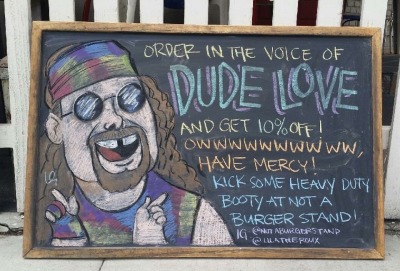 ORDER IN THE VOICE OF
DUDE LOVE
AND GET 10% OFF!
OWWWWWWWWWW,
HAVE MERCY!
KICK SOME HEAVY DUTY
BOOTY AT NOT A
BURGER STAND!
IG @NOTABURGERSTAND